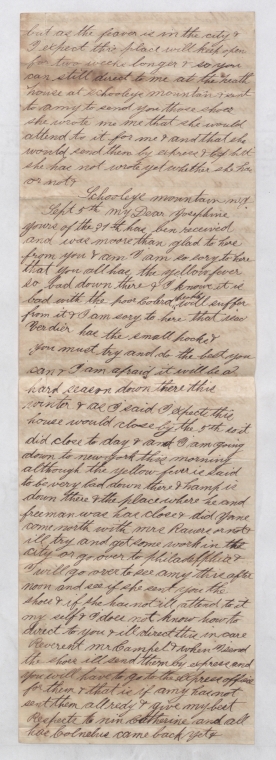 but as the feavor is in the city &
I expect this place will keep open
for two weeks longer & so you
can still direct to me at the heath
house at Schooleys mountain & sent
to amy to send you those shoes
she wrote me that she would
attend to it for me & and that she
would send them by express &
she has not wrote yet whether she has
or not &
Schooleys mountain N.J.
Sept 5th My Dear Josephine
yours of the 31th has ben received
and was moore than glad to here
from you & am I am so sory to here
that you all has the yellow fever
so bad down there & I know it is
bad with the poor colord will suffer
from it & I am sory to here that
Verdier has the small pocks &
you must try and do the best you
can & I am afraid it will be a
hard season down there this
winter & as I said I expects this
house would close by the 5th so it
did close to day & and I am going
down to new york this morning
although the yellow fever is said
to be very bad down there & hamp is
down there & the place where he and
freeman was has close & did
come north with mrs or not &
ill try and get some work in the
city or go over to philadelphia &
I will go over to see amy this after
noon and see if she sent you the
shoes & if she has not ill attend to it
my self & I does not know how to
direct to you & ill direct this in care
Reverent mr Campel & when I send
the shoes ill send them by express and
you will have to go to the express office
for them & that is if amy has not
sent them allredy & give my best
Respects to Catherine and all
has Cornelus came back yet &